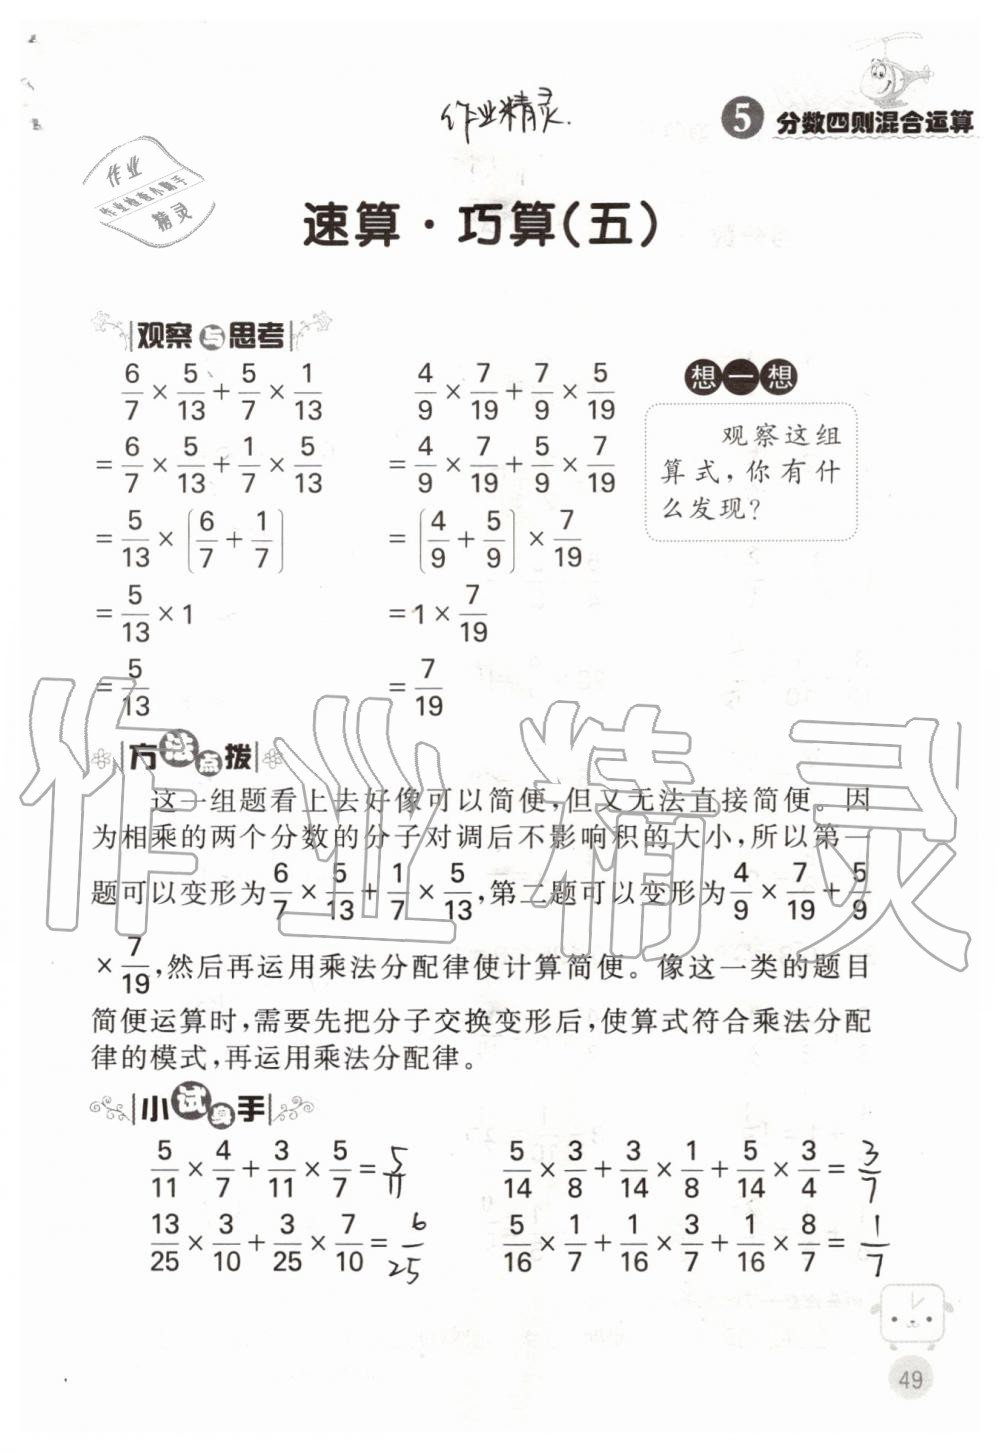 作业精灵.
5 分数四则混合运算
作业
作业检查小助手
精灵
速算·巧算(五)
观察与思考
6/7 × 5/13 + 5/7 × 1/13
= 6/7 × 5/13 + 1/7 × 5/13
= 5/13 × (6/7 + 1/7)
= 5/13 × 1
= 5/13
4/9 × 7/19 + 7/9 × 5/19
= 4/9 × 7/19 + 5/9 × 7/19
= (4/9 + 5/9) × 7/19
= 1 × 7/19
= 7/19
想一想
观察这组
算式,你有什
么发现?
方法点拨
这一组题看上去好像可以简便,但又无法直接简便。因
为相乘的两个分数的分子对调后不影响积的大小,所以第一
题可以变形为 6/7 × 5/13 + 1/7 × 5/13 ,第二题可以变形为 4/9 × 7/19 + 5/9
× 7/19 ,然后再运用乘法分配律使计算简便。像这一类的题目
简便运算时,需要先把分子交换变形后,使算式符合乘法分配
律的模式,再运用乘法分配律。
小试身手
5/11 × 4/7 + 3/11 × 5/7 = 5/11
5/14 × 3/8 + 3/14 × 1/8 + 5/14 × 3/4 = 3/7
13/25 × 3/10 + 3/25 × 7/10 = 6/25
5/16 × 1/7 + 1/16 × 3/7 + 1/16 × 8/7 = 1/7
49
作业精灵